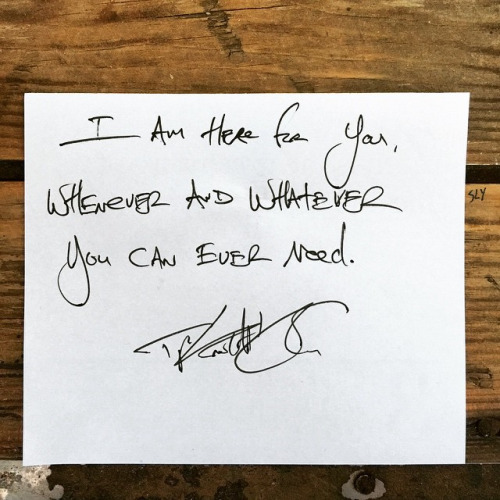 I Am Here For You,
WHENEVER AND WHATEVER
You CAN EVER Need.
SLY